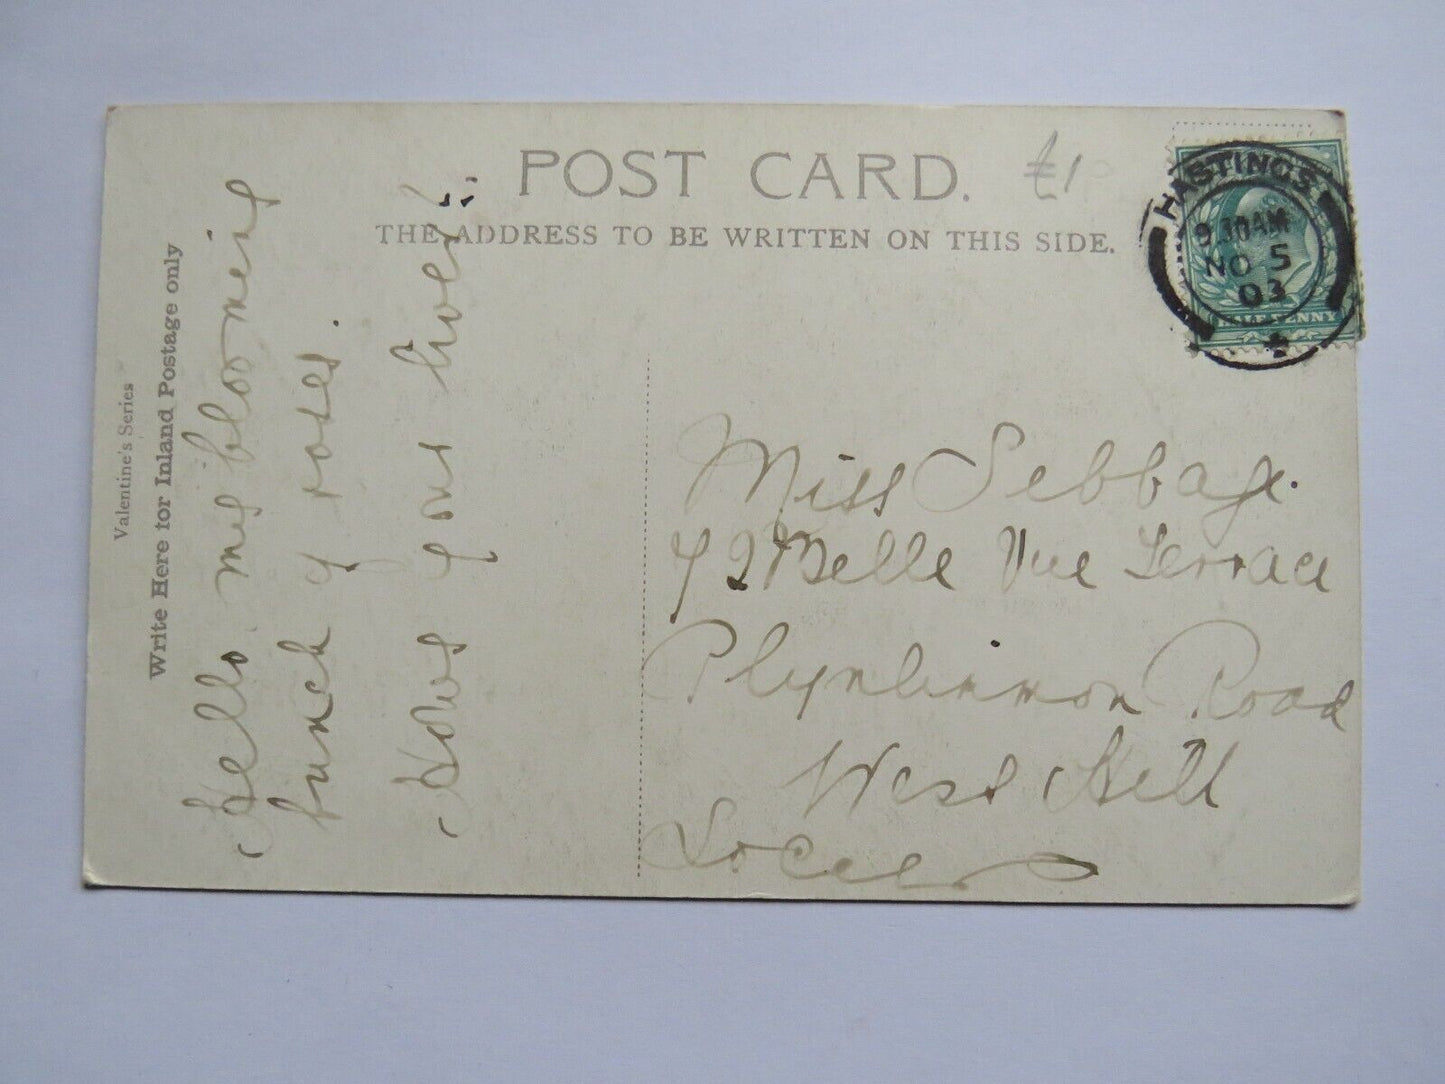 POST CARD.
£1
THE ADDRESS TO BE WRITTEN ON THIS SIDE.
HASTINGS
9.30AM
NO 5
03
HALFPENNY
Valentine's Series
Write Here for Inland Postage only
Hello my blooming
bunch of roses.
Hows your
Miss Sebbage.
72 Belle Vue Terrace
Plynlimmon Road
West Hill
Local